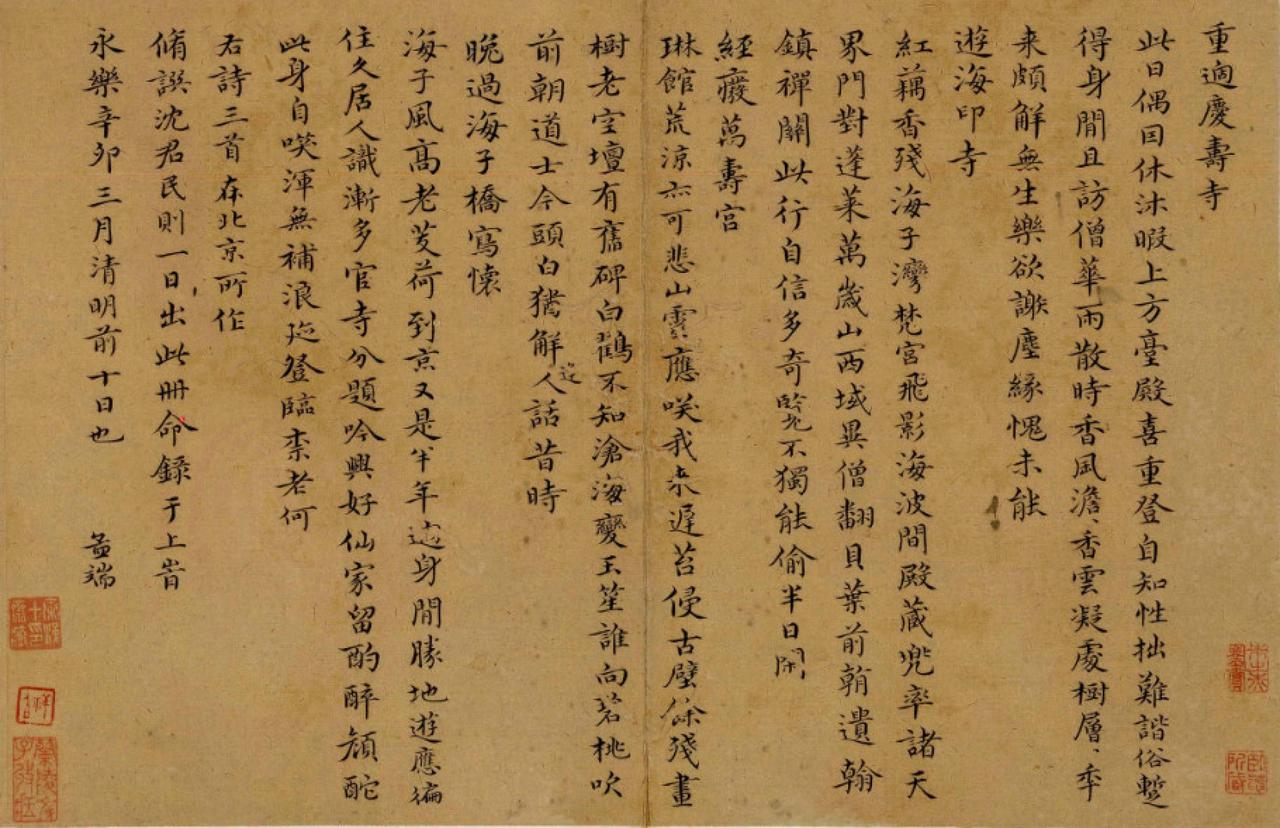 重適慶壽寺
此日偶因休沐暇上方臺殿喜重登自知性拙難諧俗暫
得身閒且訪僧華雨散時香風澹、香雲凝處樹層、年
来頗解無生樂欲謝塵緣愧未能
遊海印寺
紅藕香殘海子灣梵宮飛影海波間殿藏兜率諸天
界門對蓬萊萬歲山西域異僧翻貝葉前朝遺翰
鎮禪關此行自信多奇覽不獨能偷半日閑
經廢萬壽宮
琳館荒涼亦可悲山雲應咲我来遲苔侵古壁餘殘畫
樹老空壇有舊碑白鶴不知滄海變玉笙誰向碧桃吹
前朝道士今頭白猶解人話昔時
逆
晚過海子橋寫懷
海子風高老芰荷到京又是半年過身閒勝地遊應徧
住久居人識漸多官寺分題吟興好仙家留酌醉顏酡
此身自咲渾無補浪跡登臨柰老何
右詩三首在北京所作
脩譔沈君民則一日出此冊命錄于上旹
永樂辛卯三月清明前十日也
孟端